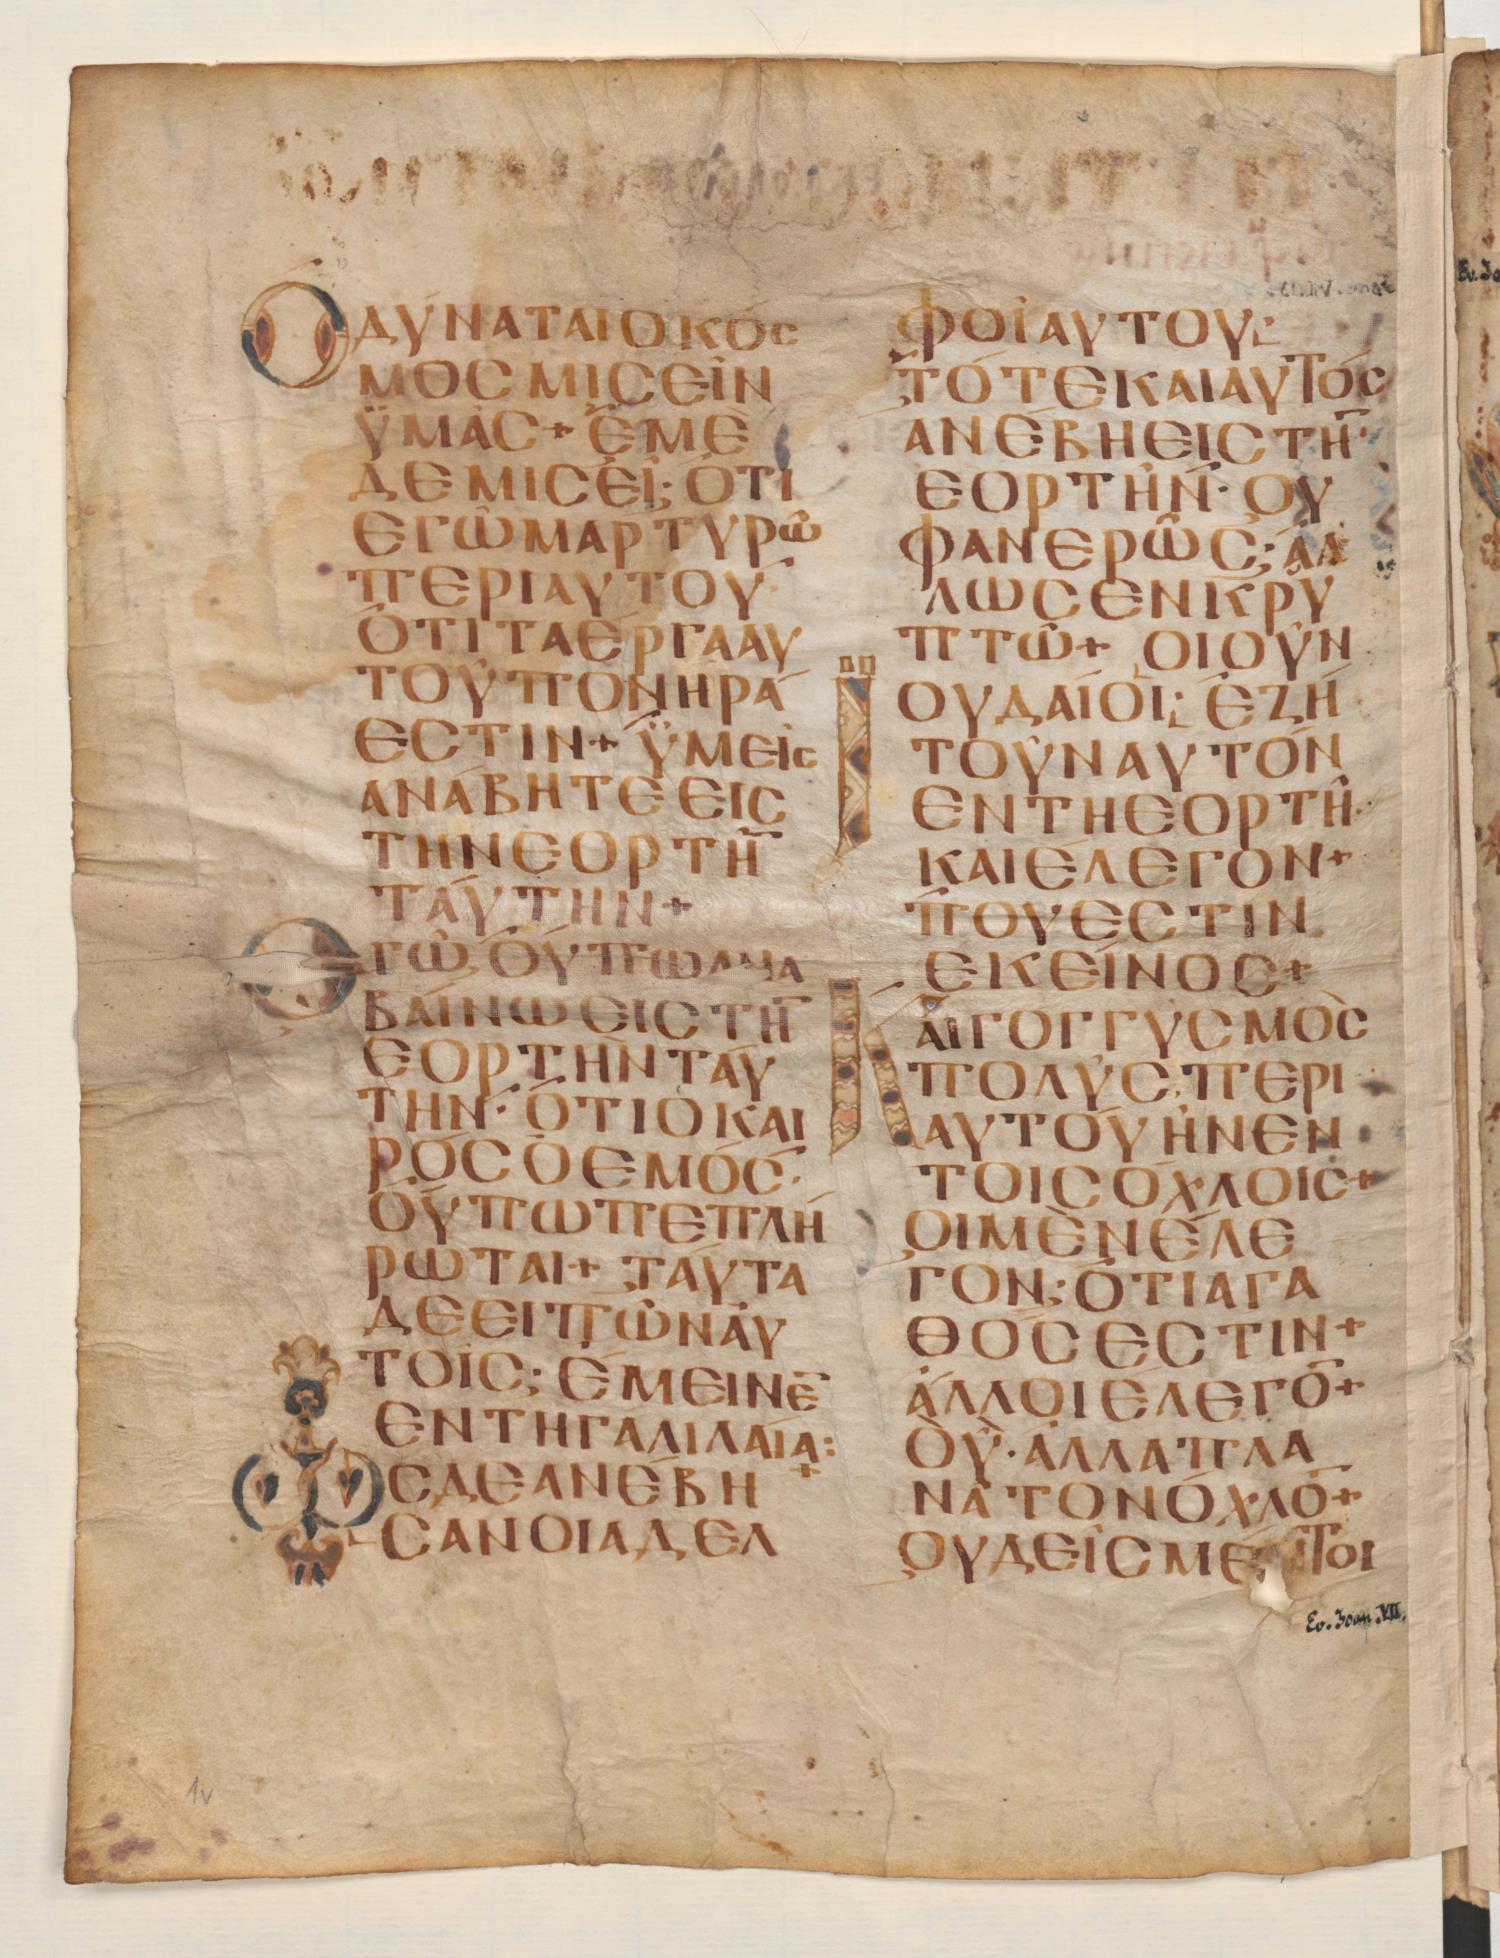 ΟΔΥΝΑΤΑΙΟΚΟΣ
ΜΟΣΜΙΣΕΙΝ
ΫΜΑΣ+ΕΜΕ
ΔΕΜΙΣΕΙ;ΟΤΙ
ΕΓΩΜΑΡΤΥΡΩ
ΠΕΡΙΑΥΤΟΥ·
ΟΤΙΤΑΕΡΓΑΑΥ
ΤΟΥΠΟΝΗΡΑ
ΕΣΤΙΝ+ΫΜΕΙΣ
ΑΝΑΒΗΤΕΕΙΣ
ΤΗΝΕΟΡΤΗ̅
ΤΑΥΤΗΝ+
ΕΓΩΟΥΠΩΑΝΑ
ΒΑΙΝΩΕΙΣΤΗ̅
ΕΟΡΤΗΝΤΑΥ
ΤΗΝ·ΟΤΙΟΚΑΙ
ΡΟΣΟΕΜΟΣ·
ΟΥΠΩΠΕΠΛΗ
ΡΩΤΑΙ+ΤΑΥΤΑ
ΔΕΕΙΠΩΝΑΥ
ΤΟΙΣ;ΕΜΕΙΝΕ̅
ΕΝΤΗΓΑΛΙΛΑΙΑ:+
ΩΣΔΕΑΝΕΒΗ
ΣΑΝΟΙΑΔΕΛ
ΦΟΙΑΥΤΟΥ;
ΤΟΤΕΚΑΙΑΥΤΟΣ
ΑΝΕΒΗΕΙΣΤΗ̅·
ΕΟΡΤΗΝ·ΟΥ
ΦΑΝΕΡΩΣ;ΑΛ
ΛΩΣΕΝΚΡΥ
ΠΤΩ+ΟΙΟΥΝ
ΙΟΥΔΑΙΟΙ;ΕΖΗ
ΤΟΥΝΑΥΤΟΝ
ΕΝΤΗΕΟΡΤΗ·
ΚΑΙΕΛΕΓΟΝ+
ΠΟΥΕΣΤΙΝ
ΕΚΕΙΝΟΣ+
ΚΑΙΓΟΓΓΥΣΜΟΣ
ΠΟΛΥΣ·ΠΕΡΙ
ΑΥΤΟΥΗΝΕΝ
ΤΟΙΣΟΧΛΟΙΣ+
ΟΙΜΕΝΕΛΕ
ΓΟΝ;ΟΤΙΑΓΑ
ΘΟΣΕΣΤΙΝ+
ΑΛΛΟΙΕΛΕΓΟ̅+
ΟΥ·ΑΛΛΑΠΛΑ
ΝΑΤΟΝΟΧΛΟ̅+
ΟΥΔΕΙΣΜΕΝΤΟΙ
Ev. Joan. VII.
1v